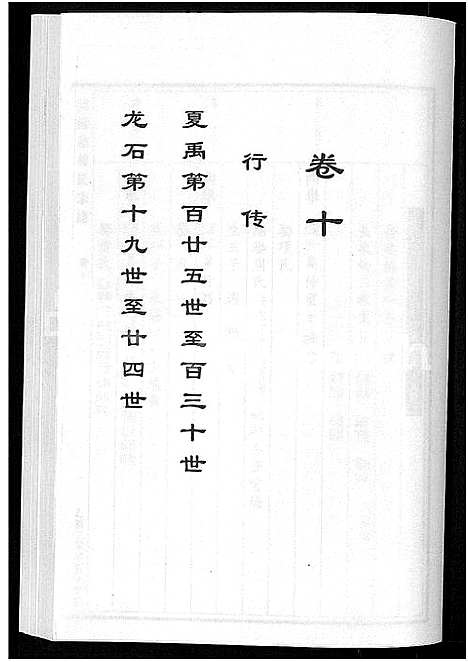 卷十
行传
夏禹第百廿五世至百三十世
龙石第十九世至廿四世